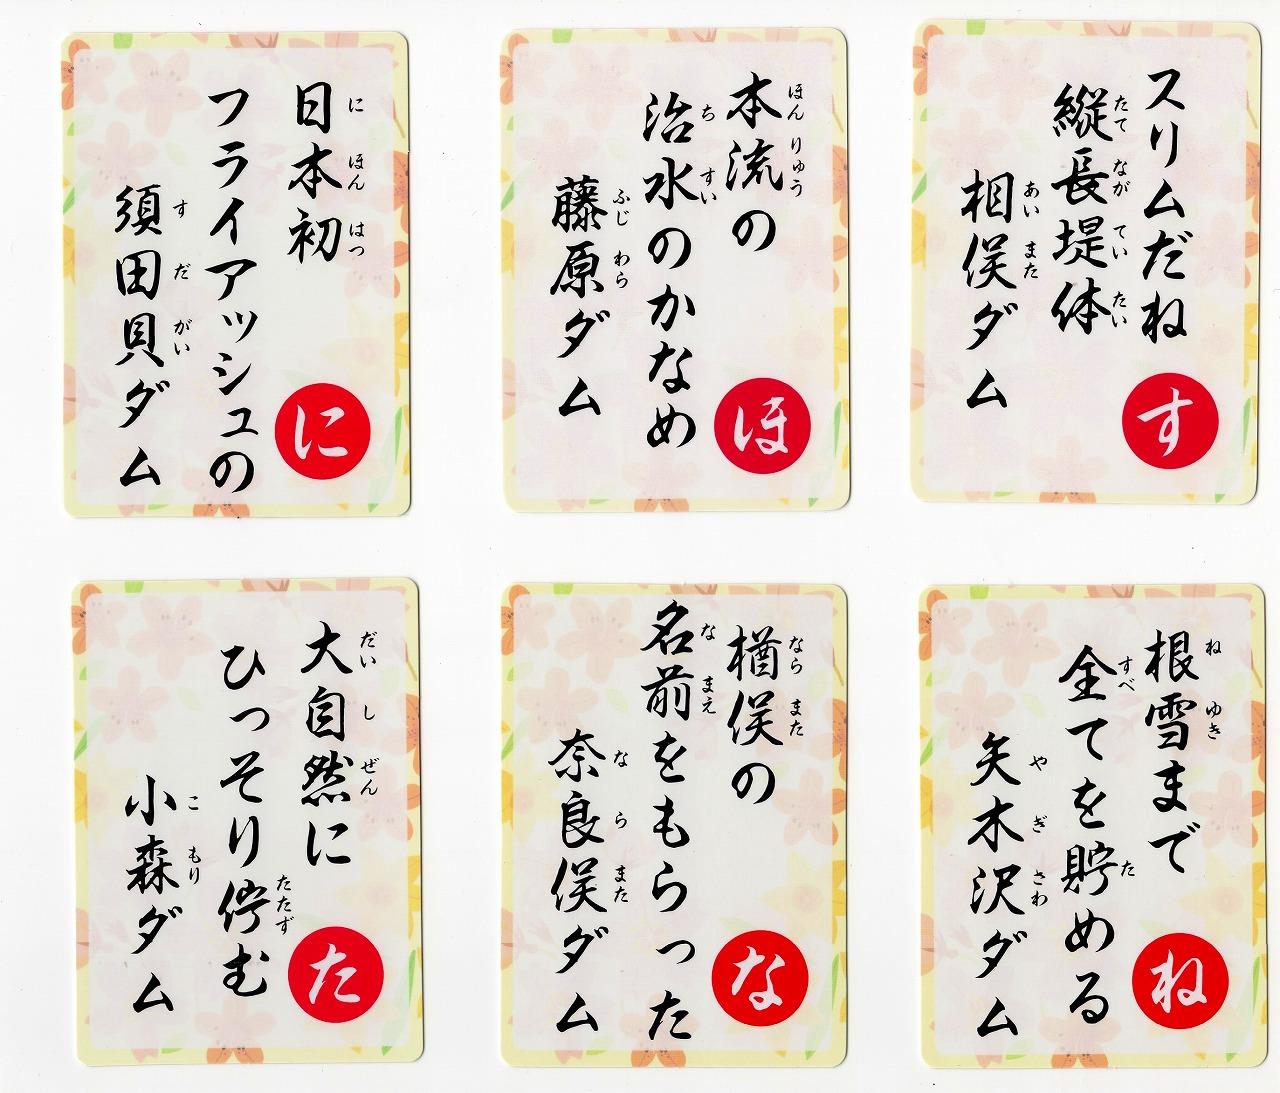 日本初
にほんはつ
フライアッシュの
須田貝ダム
すだがい
に
本流の
ほんりゅう
治水のかなめ
ちすい
藤原ダム
ふじわら
ほ
スリムだね
縦長堤体
たてながていたい
相俣ダム
あいまた
す
大自然に
だいしぜん
ひっそり佇む
たたず
小森ダム
こもり
た
楢俣の
ならまた
名前をもらった
なまえ
奈良俣ダム
ならまた
な
根雪まで
ねゆき
全てを貯める
すべた
矢木沢ダム
やぎさわ
ね